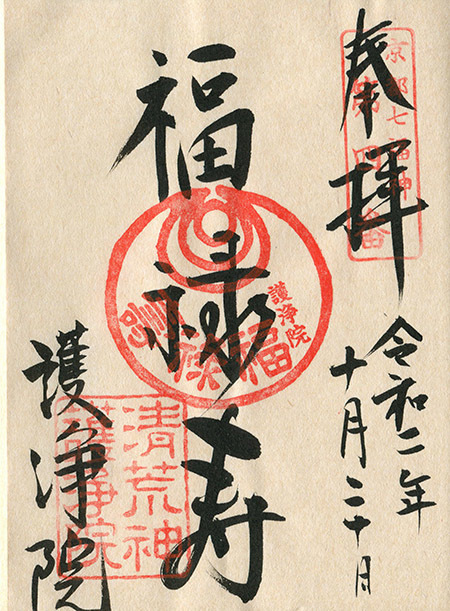 奉拝
京都七福神
第四番
令和二年
十月二十日
福禄寿
護浄院
福禄壽
護浄院
清荒神
護浄院